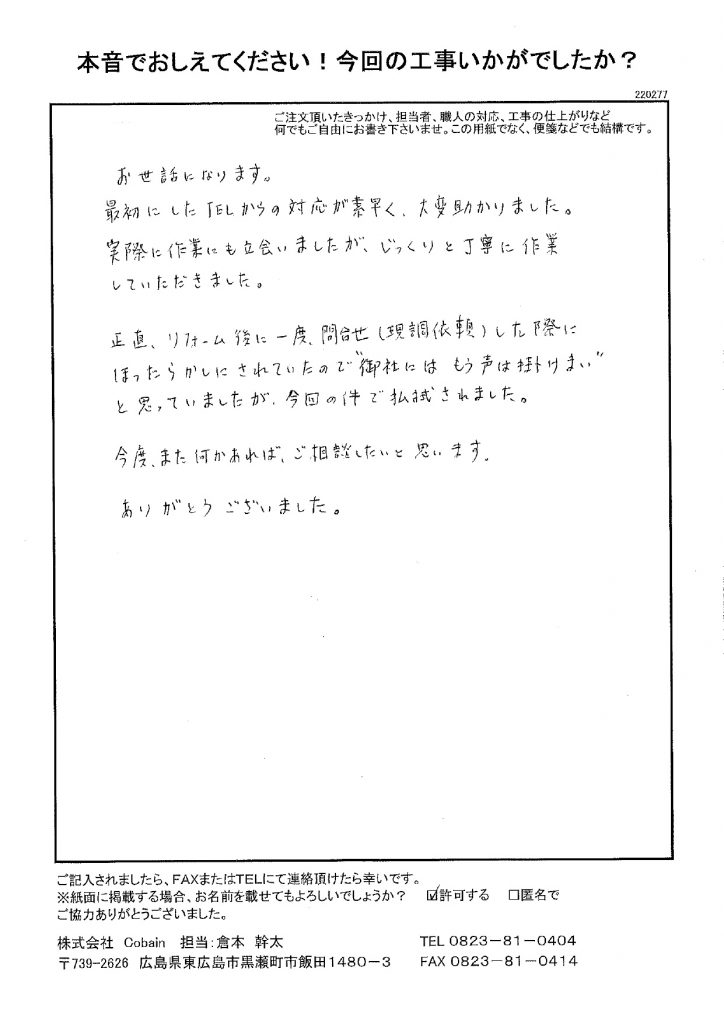 本音でおしえてください！今回の工事いかがでしたか？
220277
ご注文頂いたきっかけ、担当者、職人の対応、工事の仕上がりなど
何でもご自由にお書き下さいませ。この用紙でなく、便箋などでも結構です。
お世話になります。
最初にしたTELからの対応が素早く、大変助かりました。
実際に作業にも立会いましたが、じっくりと丁寧に作業
していただきました。
正直、リフォーム後に一度、問合せ(現調依頼)した際に
ほったらかしにされていたので"御社には もう声は掛けまい"
と思っていましたが、今回の件で払拭されました。
今度、また何かあれば、ご相談したいと思います。
ありがとうございました。
ご記入されましたら、FAXまたはTELにて連絡頂けたら幸いです。
※紙面に掲載する場合、お名前を載せてもよろしいでしょうか？ ☑許可する □匿名で
ご協力ありがとうございました。
株式会社 Cobain 担当：倉本 幹太 TEL 0823−81−0404
〒739-2626 広島県東広島市黒瀬町市飯田1480−3 FAX 0823−81−0414